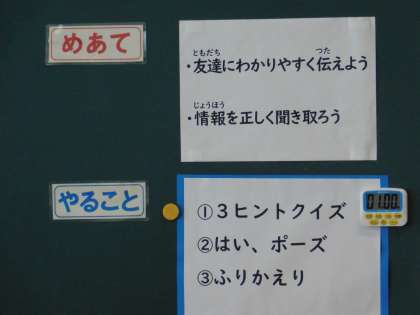 めあて
ともだち つた
・友達にわかりやすく伝えよう
じょうほう
・情報を正しく聞き取ろう
やること
①3ヒントクイズ
②はい、ポーズ
③ふりかえり
01.00